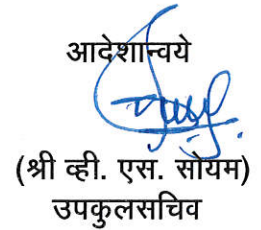 आदेशान्वये
(श्री व्ही. एस. सोयम)
उपकुलसचिव